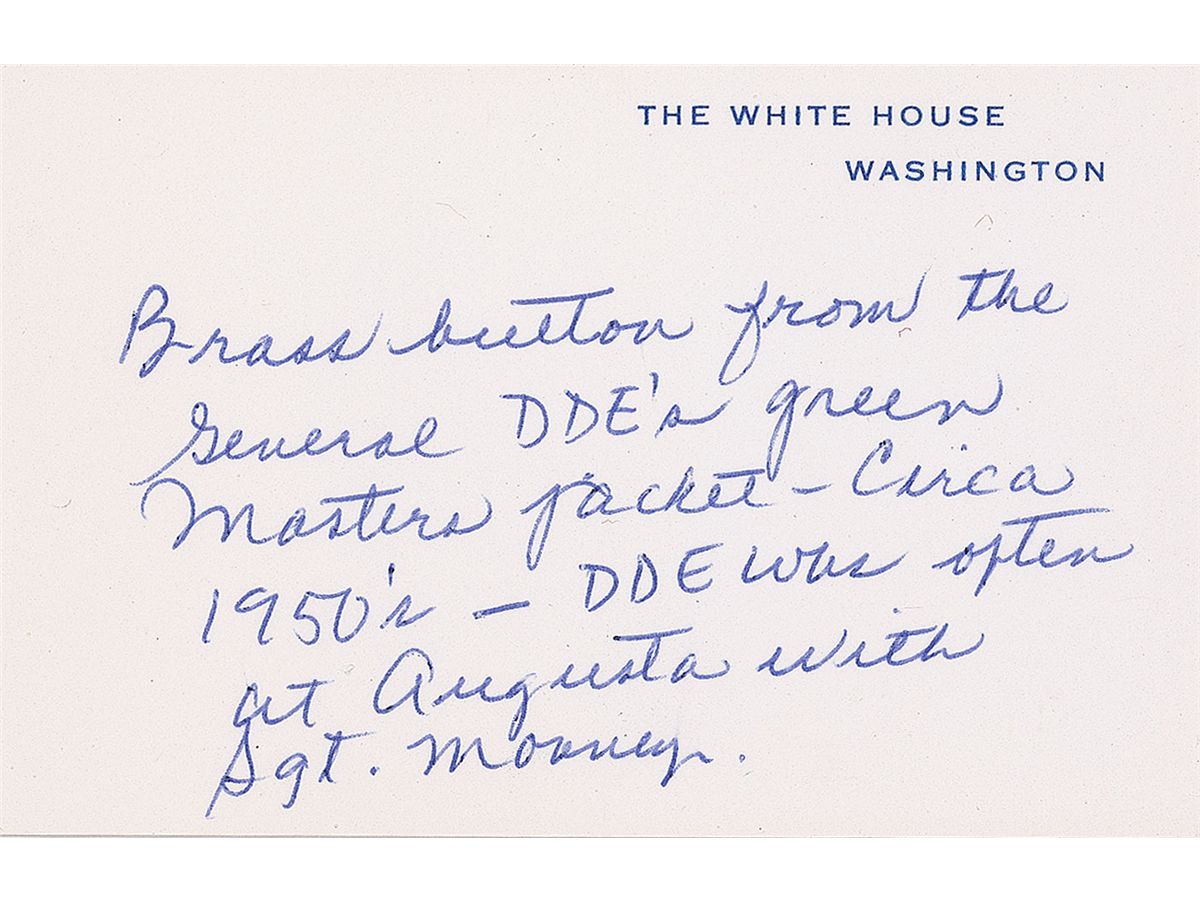 THE WHITE HOUSE
WASHINGTON
Brass button from the
General DDE's green
Masters jacket - Circa
1950's - DDE was often
at Augusta with
Sgt. Mooney.